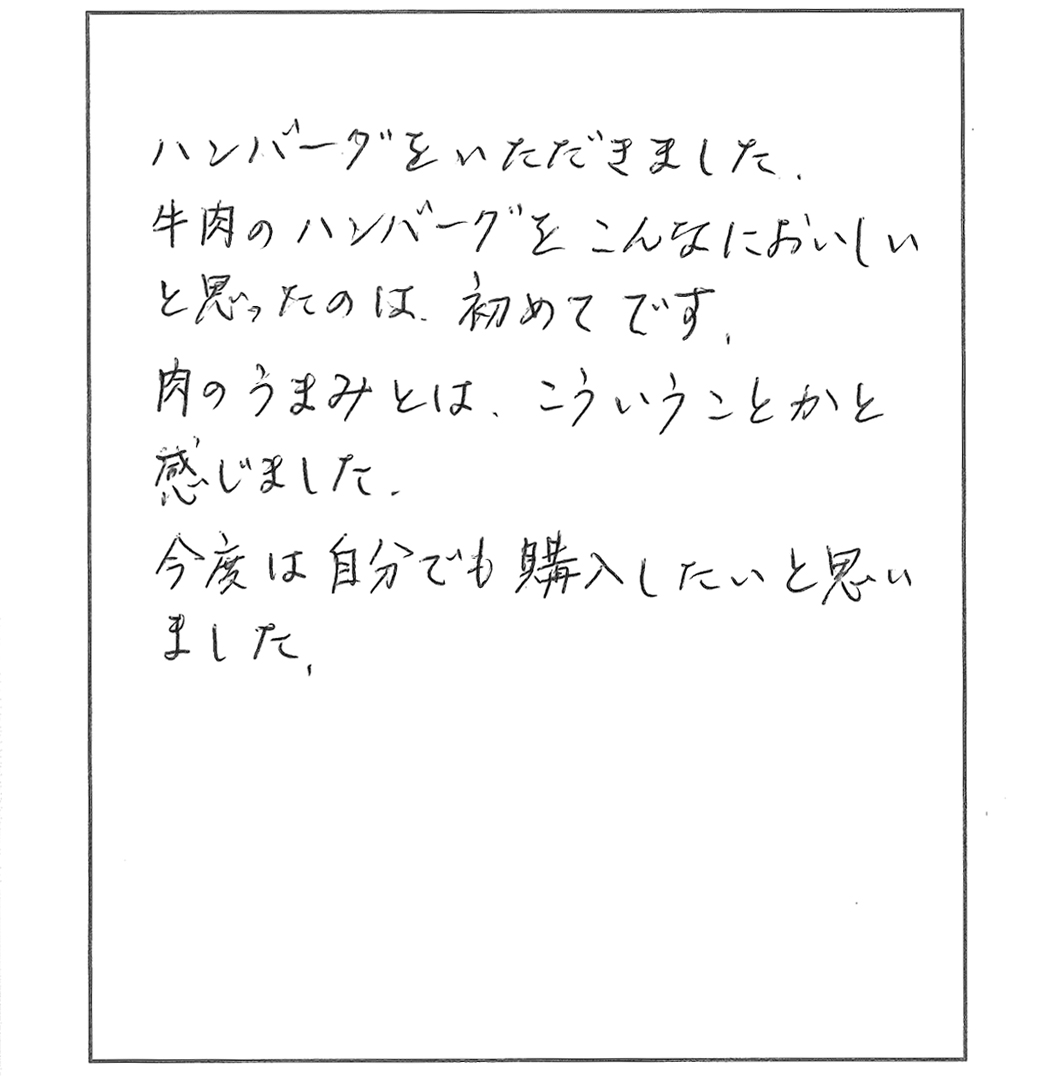 ハンバーグをいただきました.
牛肉のハンバーグをこんなにおいしい
と思ったのは、初めてです.
肉のうまみとは、こういうことかと
感じました.
今度は自分でも購入したいと思い
ました.